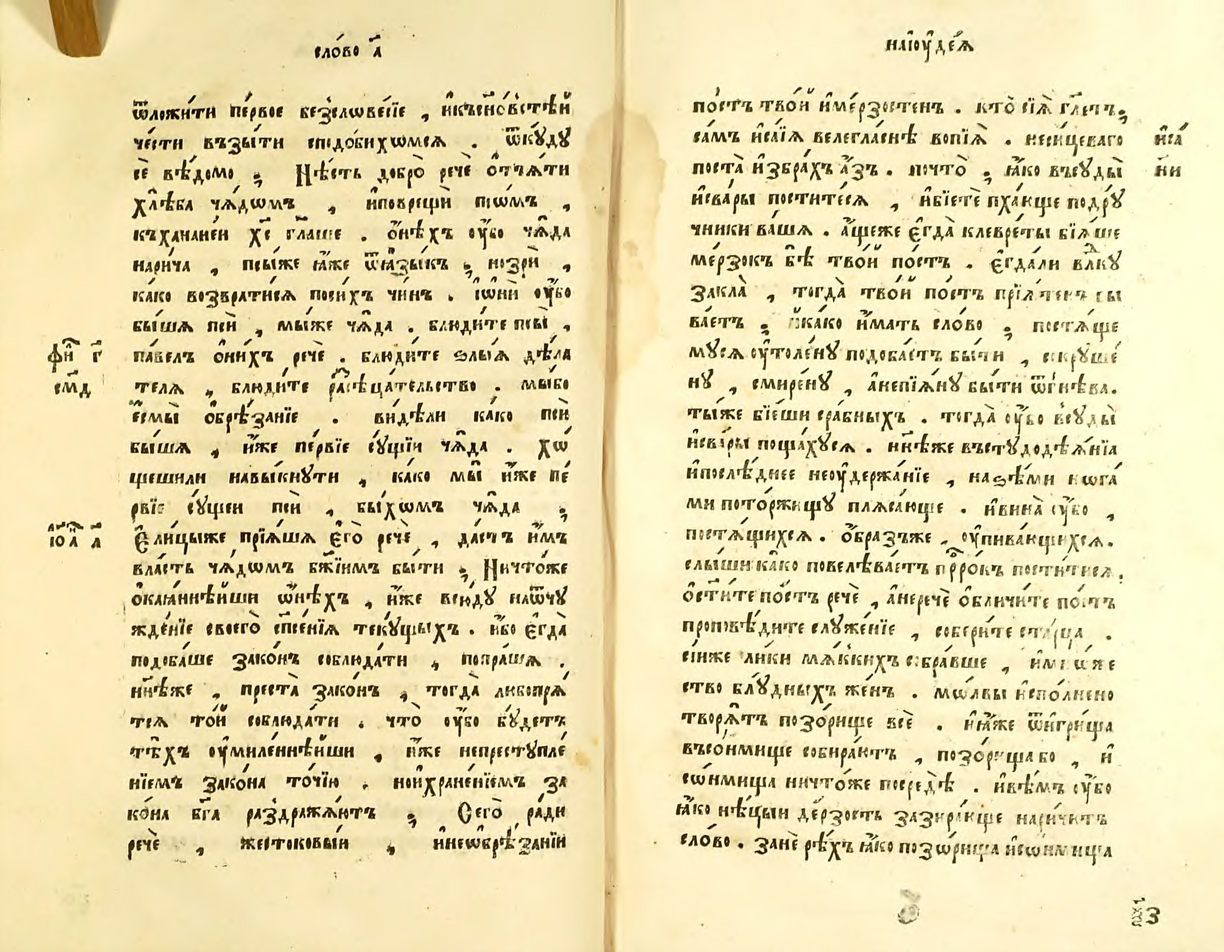 сло́во а҃
ѿложи́ти пе́рвое безсло́весїе , и҆къси́новстѣй
че́сти възы́ти сподо́бихѡмсѧ . ѿкꙋ́дꙋ
сѐ вѣ́домо ; Нѣ́сть добро̀ речѐ ѿѧ́ти
хлѣ́ба чѧ́дѡмъ , и҆поврещѝ псѡ́мъ ,
къханане́и х҃с гл҃аше . ѻ҆нѣ́хъ ᲂу҆́бо чѧ̑да
нарича̀ , псы́же ꙗ҆́же ѿꙗ҆зы́къ ; но зрѝ ,
ка́ко возврати́сѧ поси́хъ чи́нъ . і҆ѻ҆нѝ ᲂу҆́бо
бы́шѧ псѝ , мы́же чѧ̑да . блюди́те псы̀ ,
па́велъ ѻ҆ни́хъ речѐ . блюди́те ѕлы́ѧ дѣ́ла
телѧ , блюди́те разсѣца́тельство . мы́бо
є҆смы̀ ѻ҆брѣ́занїе . ви́дѣли ка́ко псѝ
бы́шѧ , и҆́же пе́рвїе сꙋ́щїи чѧ̑да . хѡ́
щешили навы́кнꙋти , ка́ко мы̀ и҆́же пе́
рвїе сꙋ́щеи псѝ , бы́хѡмъ чѧ̑да ;
Є҆ли́цыже прїѧ́шѧ є҆го̀ речѐ , да́стъ и҆̀мъ
вла́сть чѧ́дѡмъ бж҃їимъ бы́ти ; Ничто́же
ѻ҆каѧ́ннѣйши ѻ҆нѣ́хъ , и҆́же всю́дꙋ наѿчꙋ
жде́нїе своего̀ сп҃се́нїѧ текꙋ́щыхъ . и҆́бо є҆гда̀
подоба́ше зако́нъ соблюда́ти , попра́шѧ .
нн҃ѣже , преста̀ зако́нъ , тогда̀ любопрѧ́
тсѧ то́й соблюда́ти . что̀ ᲂу҆́бо бꙋ́детъ
тѣ́хъ ᲂу҆миле́ннѣйши , и҆́же непрестꙋпле́
нїемъ зако́на то́чїю . нои҆хране́нїемъ за
ко́на бг҃а раздража́ютъ ; Сего̀ ра́ди
речѐ , жестоковы́йи , и҆неѡбрѣ́занїи
фи҃ г҃
смд
і҆о҃а а҃
наїꙋде́ѧ
по́стъ тво́й и҆ме́рзостенъ . кто̀ сїѧ̀ гл҃етъ ,
са́мъ и҆са́їѧ велегла́снѣ вопїѧ̀ . неси́цеваго
поста̀ и҆збра́хъ а҆́зъ . почто̀ , ꙗ҆́ко въсꙋды̀
и҆сва́ры пости́тесѧ , и҆бїе́те пха́юще подрꙋ́
чники ва́шѧ . а҆́щеже є҆гда̀ клевре́ты бїѧ́ше
ме́рзокъ бѣ̀ тво́й по́стъ . є҆гда́ли влⷣкꙋ
закла̀ , тогда̀ тво́й по́стъ прїѧ́тенъ бы
ва́етъ ; и҆ка́ко и҆́мать сло́во ; постѧ́ще
мꙋсѧ ᲂу҆толе́нꙋ подоба́етъ бы́ти , сокрꙋше́
нꙋ , смире́нꙋ , а҆непїѧ́нꙋ бы́ти ѿгнѣ́ва .
ты́же бїе́ши срабны́хъ . тогда̀ ᲂу҆́бо всꙋды̀
и҆сва́ры поща́хꙋсѧ . нн҃ѣже въстꙋдодѣѧ́нїа
и҆послѣ́днее неᲂу҆держа́нїе , наѕѣ́ми нога́
ми пото́ржищꙋ плѧса́юще . и҆вина̀ ᲂу҆́бо ,
постѧ́щихсѧ . ѻ҆́бразъже , ᲂу҆пива́ющихсѧ .
слы́ши ка́ко повелѣва́етъ прⷪ҇ро́къ пости́тисѧ .
ѻ҆сти́те по́стъ речѐ , а҆неречѐ ѻ҆бличи́те по́стъ
проповѣ́дите слꙋже́нїе , собери́те ста́рца .
сїи́же ли́ки мѧ́ккихъ собра́вше ,
ство блꙋ́дныхъ же́нъ . мо́лвы и҆спо́лнено
творѧ́тъ позо́рище всѐ . и҆ꙗ҆́же ѿигри́ща
въсо́нмище собира́ютъ , позо́рища бо , и҆
со́нмища ничто́же посредѣ̀ . и҆вѣ́мъ ᲂу҆́бо
ꙗ҆́ко нѣ́цыи де́рзость зазира́юще нари́чютъ
сло́во . занѐ рѣ́хъ ꙗ҆́ко позо́рища и҆со́нмища
и҆са́
ни